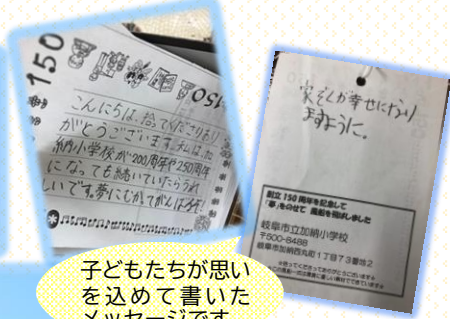 150
150
こんにちは。拾ってくださりあり
がとうございます。私は、加
納小学校が200周年や250周年
になっても続いていたらうれ
しいです。夢にむかてがんばるぞ!
家ぞくが幸せになり
ますように。
創立150周年を記念して
「夢」をのせて 風船を飛ばしました
岐阜市立加納小学校
〒500-8488
岐阜市加納西丸町1丁目73番地2
子どもたちが思い
を込めて書いた
メッセージです